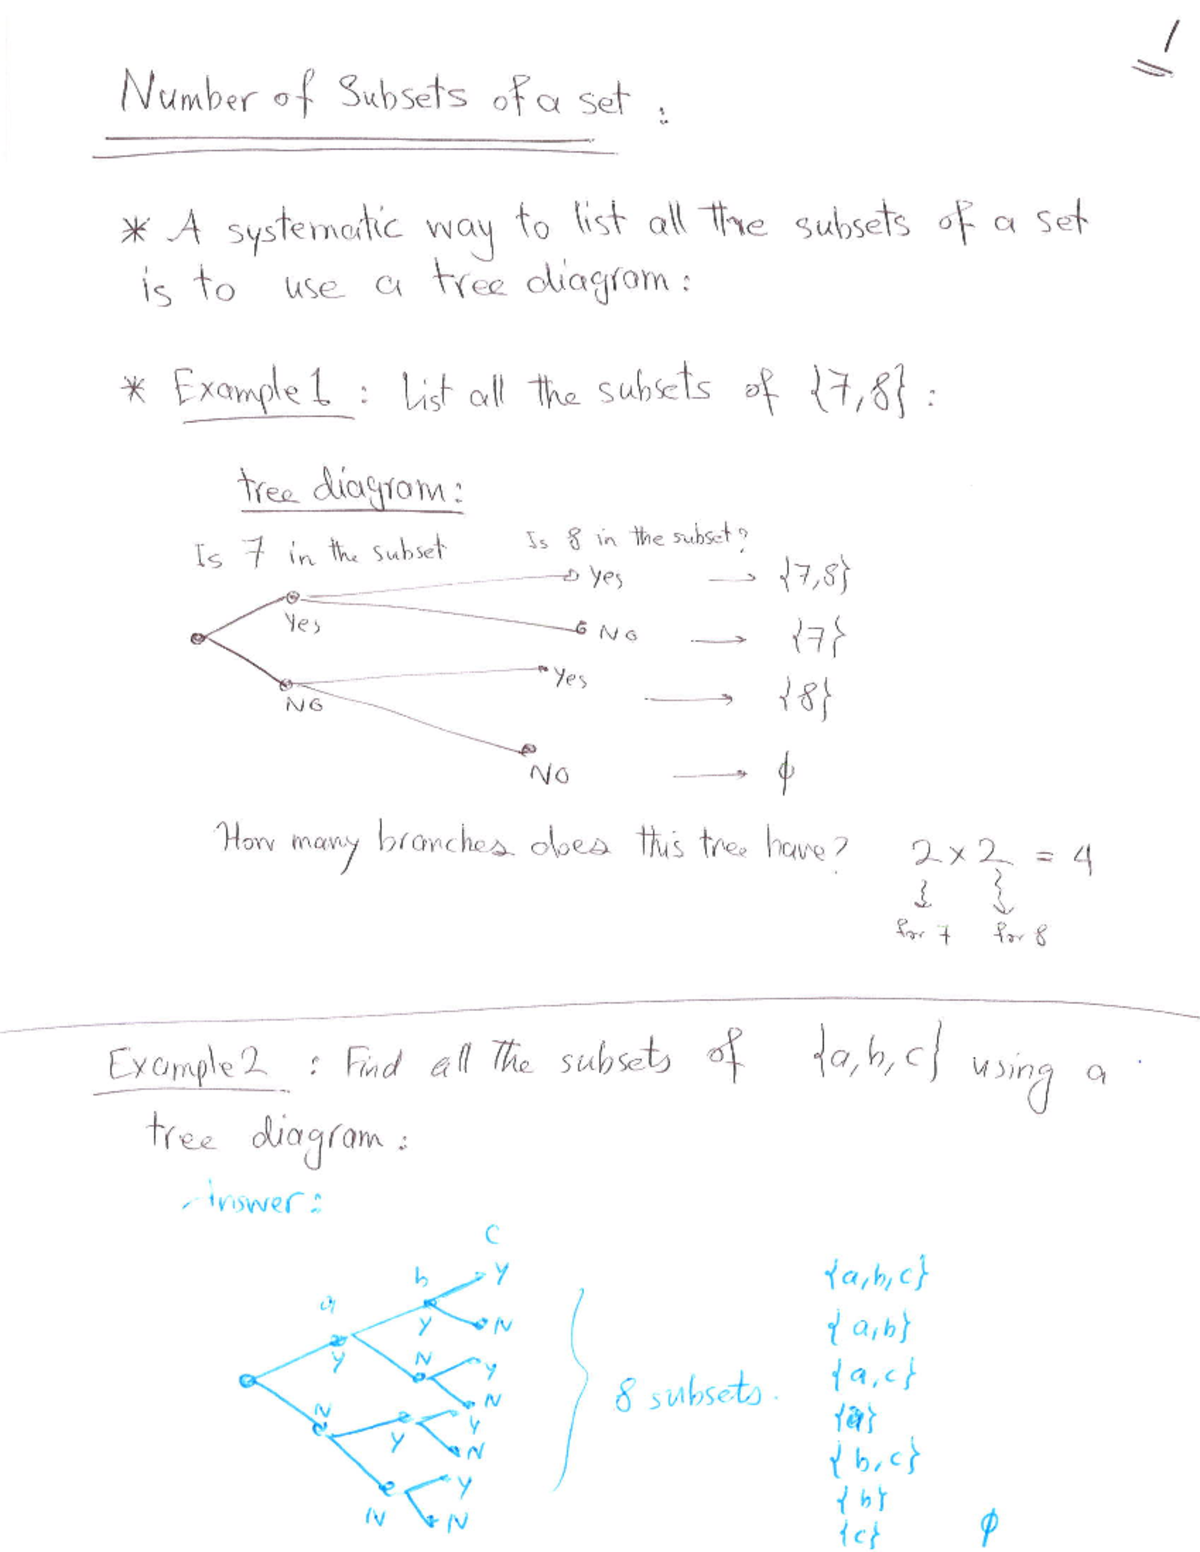 1
Number of Subsets of a set :
* A systematic way to list all the subsets of a set
is to use a tree diagram :
* Example 1 : List all the subsets of {7,8} :
tree diagram :
Is 7 in the subset Is 8 in the subset?
Yes → {7,8}
Yes
NO → {7}
Yes → {8}
NO
NO → ϕ
How many branches does this tree have? 2 × 2 = 4
for 7 for 8
Example 2 : Find all the subsets of {a,b,c} using a
tree diagram :
Answer :
c
b Y {a,b,c}
a
Y N {a,b}
Y N Y {a,c}
N
8 subsets.
N Y {a}
Y N {b,c}
Y {b}
N N {c} ϕ